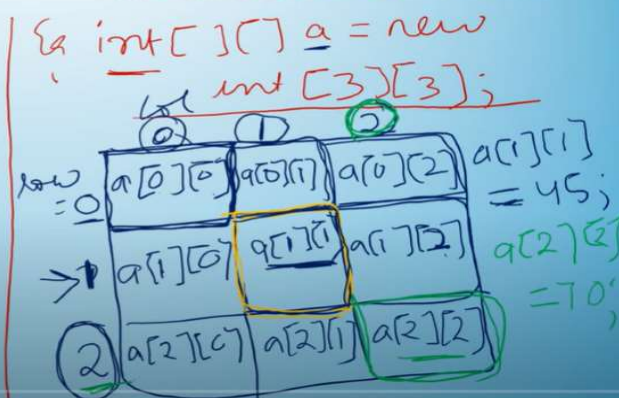 Eg int[ ][ ] a = new
int [3][3];
col
0 1 2
row = 0 a[0][0] a[0][1] a[0][2]
→ 1 a[1][0] a[1][1] a[1][2]
2 a[2][0] a[2][1] a[2][2]
a[1][1]
= 45;
a[2][2]
= 70;